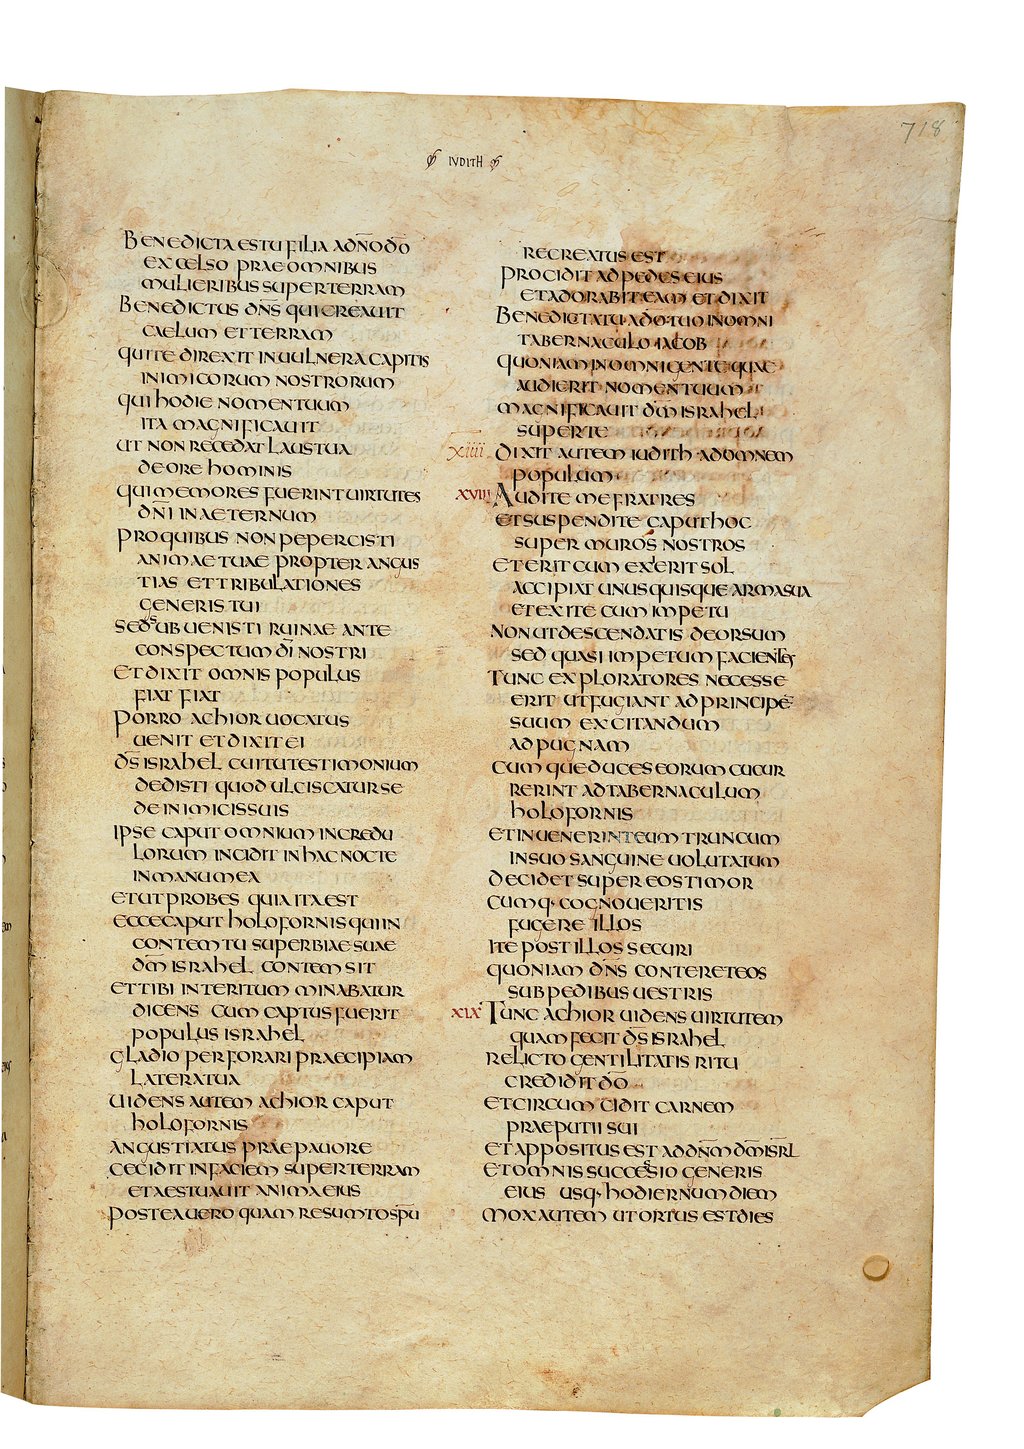 718
IUDITH
BENEDICTA ES TU FILIA A DN̄O DŌ
EXCELSO PRAE OMNIBUS
MULIERIBUS SUPER TERRAM
BENEDICTUS DN̄S QUI CREAUIT
CAELUM ET TERRAM
QUI TE DIREXIT IN UULNERA CAPITIS
INIMICORUM NOSTRORUM
QUI HODIE NOMEN TUUM
ITA MAGNIFICAUIT
UT NON RECEDAT LAUS TUA
DE ORE HOMINIS
QUI MEMORES FUERINT UIRTUTES
DN̄I IN AETERNUM
PRO QUIBUS NON PEPERCISTI
ANIMAE TUAE PROPTER ANGUS
TIAS ET TRIBULATIONES
GENERIS TUI
SED SUBUENISTI RUINAE ANTE
CONSPECTUM DĪ NOSTRI
ET DIXIT OMNIS POPULUS
FIAT FIAT
PORRO ACHIOR UOCATUS
UENIT ET DIXIT EI
DS̄ ISRAHEL CUI TU TESTIMONIUM
DEDISTI QUOD ULCISCATUR SE
DE INIMICIS SUIS
IPSE CAPUT OMNIUM INCREDU
LORUM INCIDIT IN HAC NOCTE
IN MANU MEA
ET UT PROBES QUIA ITA EST
ECCE CAPUT HOLOFORNIS QUI IN
CONTEMTU SUPERBIAE SUAE
DM̄ ISRAHEL CONTEMSIT
ET TIBI INTERITUM MINABATUR
DICENS CUM CAPTUS FUERIT
POPULUS ISRAHEL
GLADIO PERFORARI PRAECIPIAM
LATERA TUA
UIDENS AUTEM ACHIOR CAPUT
HOLOFORNIS
ANGUSTIATUS PRAE PAUORE
CECIDIT IN FACIEM SUPER TERRAM
ET AESTUAUIT ANIMA EIUS
POSTEA UERO QUAM RESUMTO SPŪ
RECREATUS EST
PROCIDIT AD PEDES EIUS
ET ADORABIT EAM ET DIXIT
BENEDICTA TU A DŌ TUO IN OMNI
TABERNACULO IACOB
QUONIAM IN OMNI GENTE QUAE
AUDIERIT NOMEN TUUM
MAGNIFICAUIT DM̄ ISRAHEL
SUPER TE
XIIII DIXIT AUTEM IUDITH AD OMNEM
POPULUM
XVIII AUDITE ME FRATRES
ET SUSPENDITE CAPUT HOC
SUPER MUROS NOSTROS
ET ERIT CUM EXIERIT SOL
ACCIPIAT UNUSQUISQUE ARMA SUA
ET EXITE CUM IMPETU
NON UT DESCENDATIS DEORSUM
SED QUASI IMPETUM FACIENTES
TUNC EXPLORATORES NECESSE
ERIT UT FUGIANT AD PRINCIPĒ
SUUM EXCITANDUM
AD PUGNAM
CUMQUE DUCES EORUM CUCUR
RERINT AD TABERNACULUM
HOLOFORNIS
ET INUENERINT EUM TRUNCUM
IN SUO SANGUINE UOLUTATUM
DECIDET SUPER EOS TIMOR
CUMQ· COGNOUERITIS
FUGERE ILLOS
ITE POST ILLOS SECURI
QUONIAM DN̄S CONTERET EOS
SUB PEDIBUS UESTRIS
XIX TUNC ACHIOR UIDENS UIRTUTEM
QUAM FECIT DS̄ ISRAHEL
RELICTO GENTILITATIS RITU
CREDIDIT DŌ
ET CIRCUMCIDIT CARNEM
PRAEPUTII SUI
ET APPOSITUS EST AD DN̄M DM̄ ISRL
ET OMNIS SUCCESSIO GENERIS
EIUS USQ· HODIERNUM DIEM
MOX AUTEM UT ORTUS EST DIES